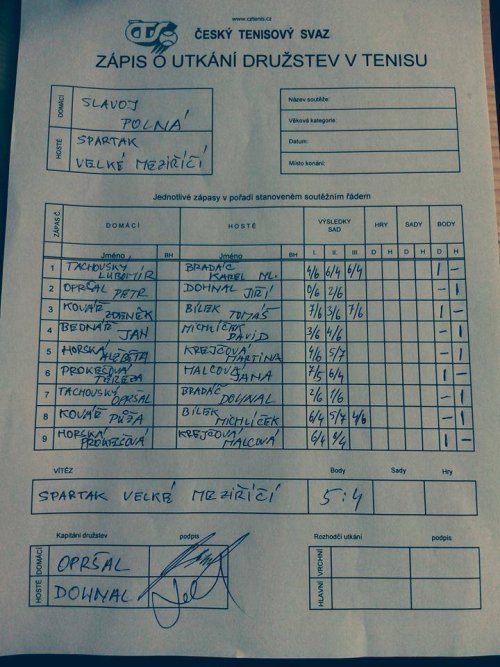 www.cztenis.cz
ČTS ČESKÝ TENISOVÝ SVAZ
ZÁPIS O UTKÁNÍ DRUŽSTEV V TENISU
DOMÁCÍ SLAVOJ
POLNÁ
HOSTÉ SPARTAK
VELKÉ MEZIŘÍČÍ
Název soutěže:
Věková kategorie:
Datum:
Místo konání:
Jednotlivé zápasy v pořadí stanoveném soutěžním řádem
ZÁPAS Č. DOMÁCÍ HOSTÉ VÝSLEDKY SAD HRY SADY BODY
Jméno BH Jméno BH I. II. III. D H D H D H
1 TACHOVSKÝ LUBOMÍR BRADÁČ KAREL ML. 4/6 6/4 6/4 1 –
2 OPRŠAL PETR DOHNAL JIŘÍ 0/6 2/6 – 1
3 KOVÁŘ ZDENĚK BÍLEK TOMÁŠ 7/6 3/6 7/6 1 –
4 BEDNÁŘ JAN MICHLÍČEK DAVID 3/6 4/6 – 1
5 HORSKÁ ALŽBĚTA KREJČOVÁ MARTINA 4/6 5/7 – 1
6 PROKEŠOVÁ TEREZA MALCOVÁ JANA 7/5 6/4 1 –
7 TACHOVSKÝ OPRŠAL BRADÁČ DOHNAL 2/6 1/6 – 1
8 KOVÁŘ PŮŽA BÍLEK MICHLÍČEK 6/4 5/7 4/6 – 1
9 HORSKÁ PROKEŠOVÁ KREJČOVÁ MALCOVÁ 6/4 1 –
VÍTĚZ Body Sady Hry
SPARTAK VELKÉ MEZIŘÍČÍ 5:4
Kapitáni družstev podpis Rozhodčí utkání podpis
DOMÁCÍ OPRŠAL VRCHNÍ
HOSTÉ DOHNAL HLAVNÍ